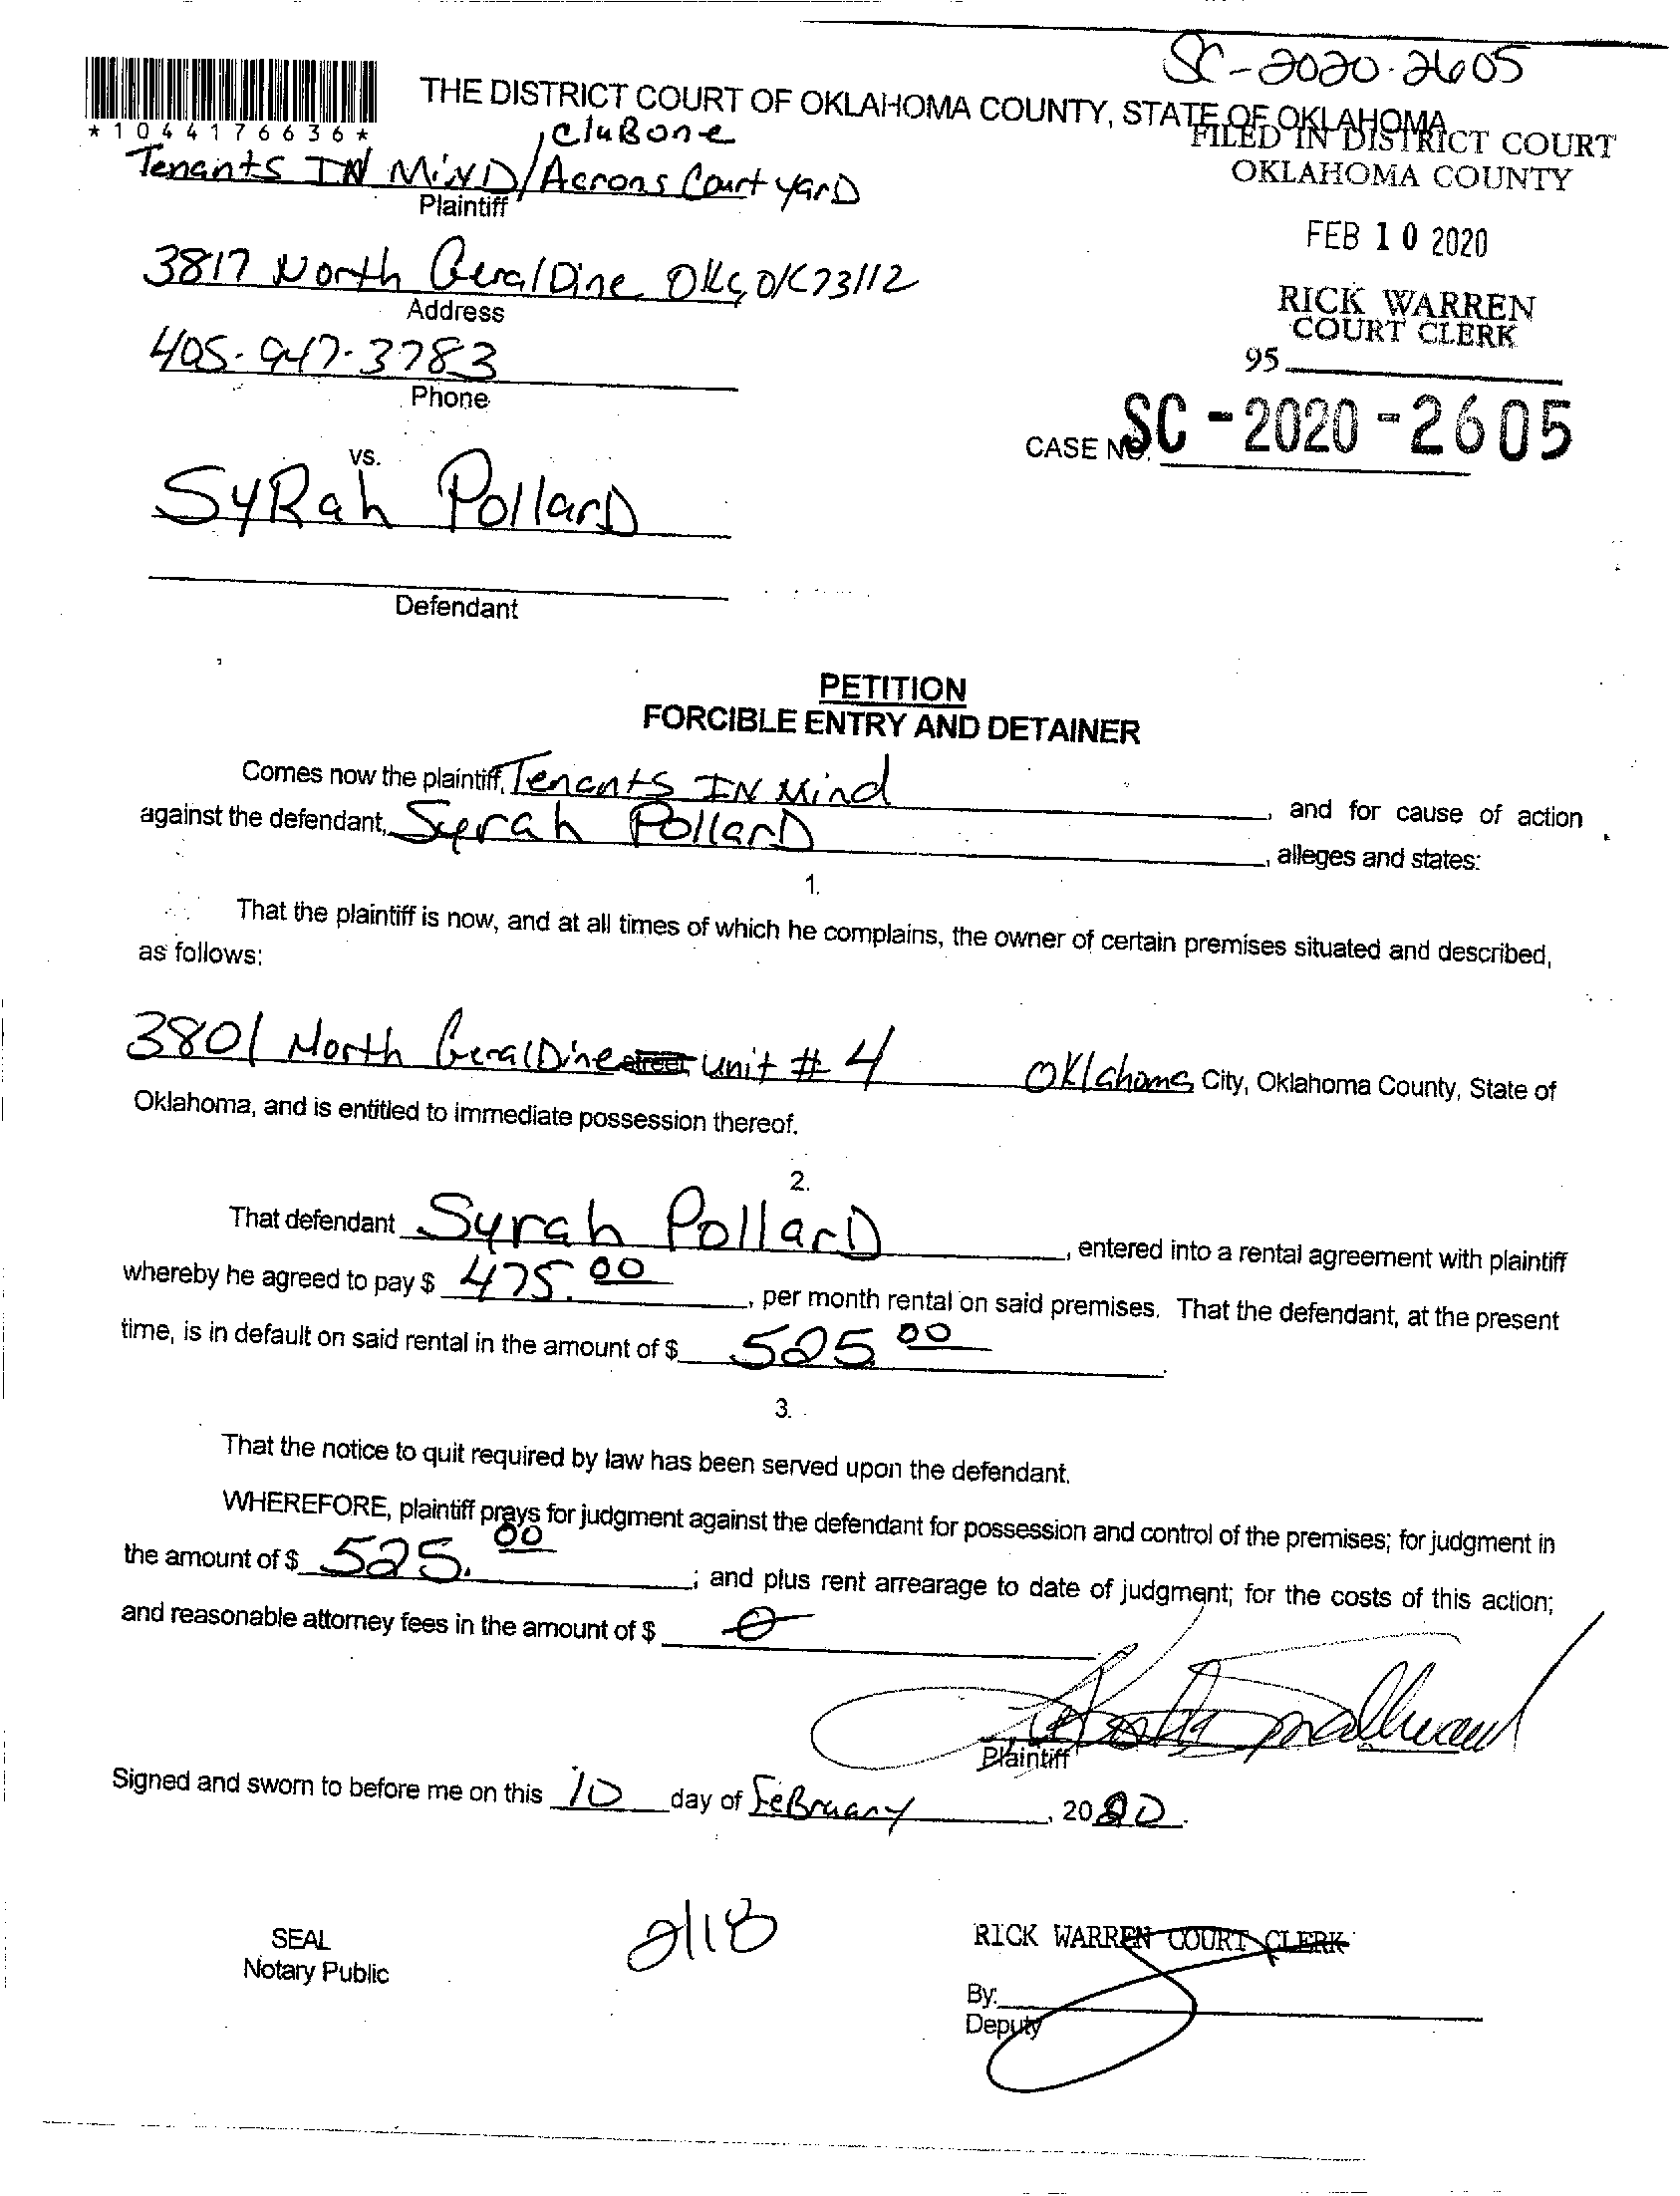 SC-2020-2605
THE DISTRICT COURT OF OKLAHOMA COUNTY, STATE OF OKLAHOMA
*1044176636*
FILED IN DISTRICT COURT
OKLAHOMA COUNTY
FEB 10 2020
RICK WARREN
COURT CLERK
95
CASE NO. SC-2020-2605
CluBone
Tenants IN MiND/Acrons Court yarD
Plaintiff
3817 North GeralDine OKC, OK 73112
Address
405-947-3783
Phone
vs.
SyRah PollarD
Defendant
PETITION
FORCIBLE ENTRY AND DETAINER
Comes now the plaintiff, Tenants IN Mind, and for cause of action
against the defendant, Syrah PollarD, alleges and states:
1.
That the plaintiff is now, and at all times of which he complains, the owner of certain premises situated and described,
as follows:
3801 North GeralDine street unit # 4 Oklahoma City, Oklahoma County, State of
Oklahoma, and is entitled to immediate possession thereof.
2.
That defendant Syrah PollarD, entered into a rental agreement with plaintiff
whereby he agreed to pay $ 475.00, per month rental on said premises. That the defendant, at the present
time, is in default on said rental in the amount of $ 525 00.
3.
That the notice to quit required by law has been served upon the defendant.
WHEREFORE, plaintiff prays for judgment against the defendant for possession and control of the premises; for judgment in
the amount of $ 525.00; and plus rent arrearage to date of judgment; for the costs of this action;
and reasonable attorney fees in the amount of $ 0
Plaintiff
Signed and sworn to before me on this 10 day of FeBruary, 2020.
SEAL
Notary Public
2/18
RICK WARREN COURT CLERK
By:
Deputy